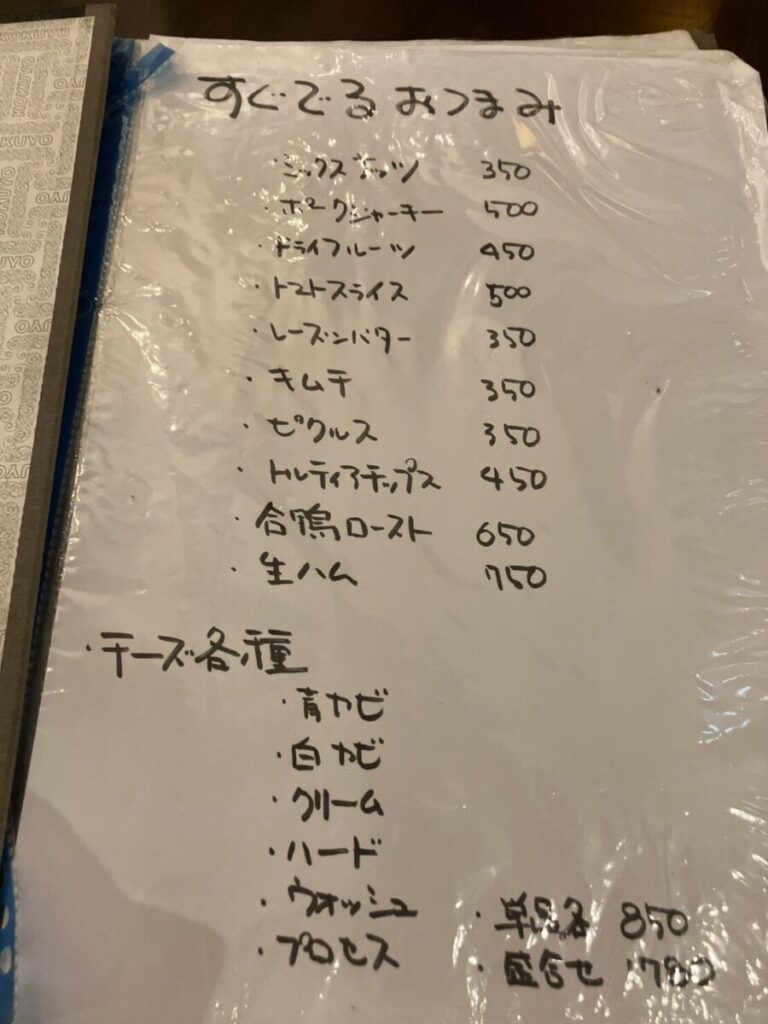 すぐでる おつまみ
・ミックスナッツ 350
・ポークジャーキー 500
・ドライフルーツ 450
・トマトスライス 500
・レーズンバター 350
・キムチ 350
・ピクルス 350
・トルティアチップス 450
・合鴨ロースト 650
・生ハム 750
・チーズ各種
・青カビ
・白カビ
・クリーム
・ハード
・ウォッシュ ・単品各 850
・プロセス ・盛合せ 1780
KOKUYO